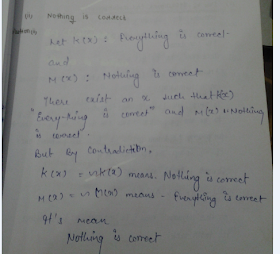 (v) Nothing is correct
Solution:-
Let K(x) : Everything is correct.
and
M(x) : Nothing is correct
There exist an x such that K(x)
"Everything is correct" and M(x) Nothing
is correct.
But by contradiction,
K(x) = ~K(x) means. Nothing is correct
M(x) = ~ M(x) means - Everything is correct
It's mean
Nothing is correct